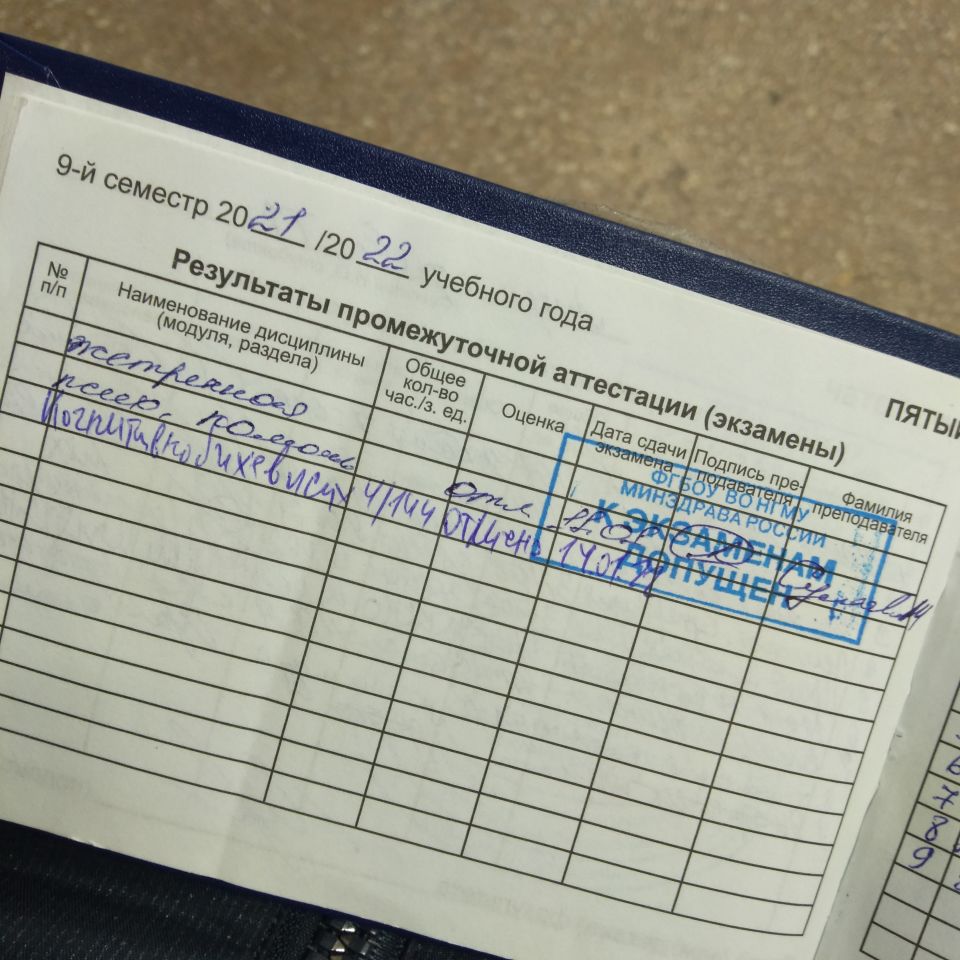 9-й семестр 2021/2022 учебного года
ПЯТЫЙ
Результаты промежуточной аттестации (экзамены)
№ п/п
Наименование дисциплины
(модуля, раздела)
Общее
кол-во
час./з. ед.
Оценка
Дата сдачи
экзамена
Подпись пре-
подавателя
Фамилия
преподавателя
экстренная
псих. помощь
отл.
Когнитивно бихевиор 4/144 отлично 14.01.22
ФГБОУ ВО НГМУ
МИНЗДРАВА РОССИИ
К ЭКЗАМЕНАМ
ДОПУЩЕН
6
7
8
9